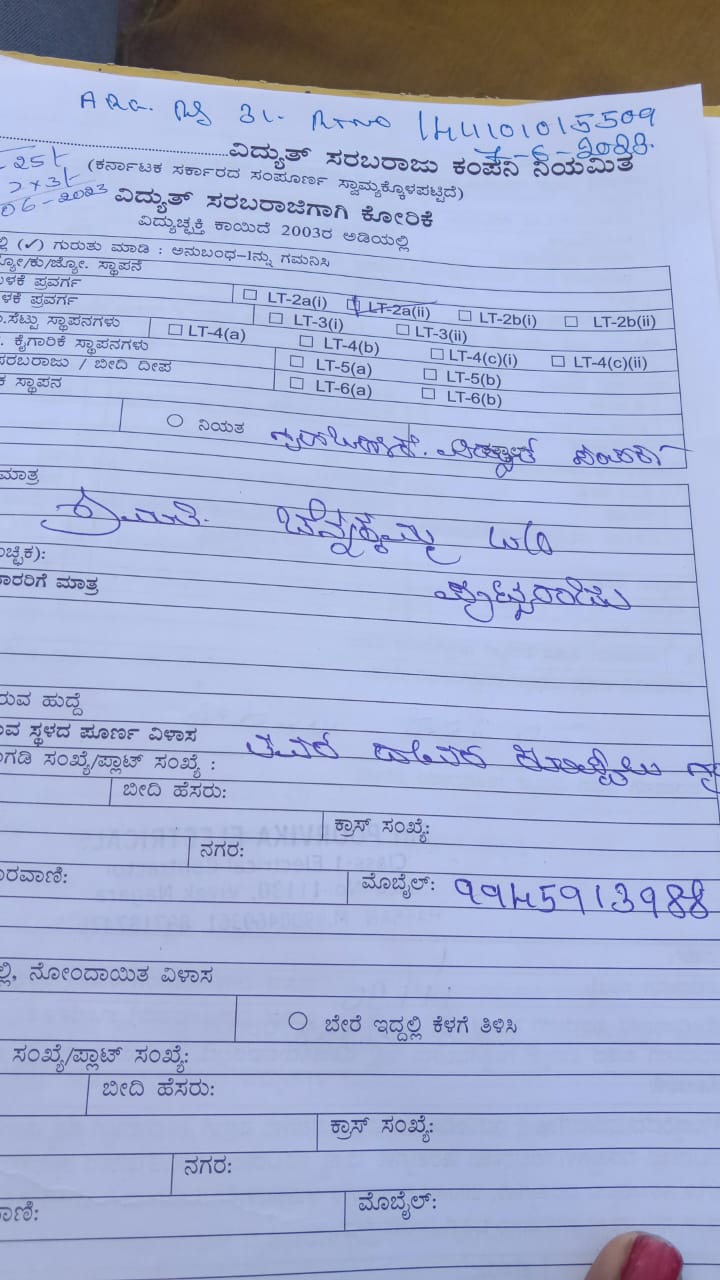 ARG. RS 31. RTNO 144101015509
7-6-2023.
25/-
2x3/-
06-2023
ವಿದ್ಯುತ್ ಸರಬರಾಜು ಕಂಪನಿ ನಿಯಮಿತ
(ಕರ್ನಾಟಕ ಸರ್ಕಾರದ ಸಂಪೂರ್ಣ ಸ್ವಾಮ್ಯಕ್ಕೊಳಪಟ್ಟಿದೆ)
ವಿದ್ಯುತ್ ಸರಬರಾಜಿಗಾಗಿ ಕೋರಿಕೆ
ವಿದ್ಯುಚ್ಛಕ್ತಿ ಕಾಯಿದೆ 2003ರ ಅಡಿಯಲ್ಲಿ
ಲ್ಲಿ (✓) ಗುರುತು ಮಾಡಿ : ಅನುಬಂಧ-1ನ್ನು ಗಮನಿಸಿ
ಜ್ಯೋ/ಕು/ಜ್ಯೋ. ಸ್ಥಾಪನೆ
ಳಕೆ ಪ್ರವರ್ಗ ☐ LT-2a(i) ☐ LT-2a(ii) ☐ LT-2b(i) ☐ LT-2b(ii)
ಳಕೆ ಪ್ರವರ್ಗ ☐ LT-3(i) ☐ LT-3(ii)
.ಸೆಟ್ಟು ಸ್ಥಾಪನಗಳು ☐ LT-4(a) ☐ LT-4(b) ☐ LT-4(c)(i) ☐ LT-4(c)(ii)
. ಕೈಗಾರಿಕೆ ಸ್ಥಾಪನಗಳು ☐ LT-5(a) ☐ LT-5(b)
ಸರಬರಾಜು / ಬೀದಿ ದೀಪ ☐ LT-6(a) ☐ LT-6(b)
ಕ ಸ್ಥಾಪನ
○ ನಿಯತ
ಮಾತ್ರ
ಶ್ರೀಮತಿ. ಚೆನ್ನಕ್ಕಮ್ಮ W/O
ಚ್ಛಿಕ):
ಾರರಿಗೆ ಮಾತ್ರ
ರುವ ಹುದ್ದೆ
ುವ ಸ್ಥಳದ ಪೂರ್ಣ ವಿಳಾಸ
ಗಡಿ ಸಂಖ್ಯೆ/ಪ್ಲಾಟ್ ಸಂಖ್ಯೆ :
ಬೀದಿ ಹೆಸರು:
ಕ್ರಾಸ್ ಸಂಖ್ಯೆ:
ನಗರ:
ೂರವಾಣಿ: ಮೊಬೈಲ್: 9945913988
ಲ್ಲಿ, ನೋಂದಾಯಿತ ವಿಳಾಸ
○ ಬೇರೆ ಇದ್ದಲ್ಲಿ ಕೆಳಗೆ ತಿಳಿಸಿ
ಸಂಖ್ಯೆ/ಪ್ಲಾಟ್ ಸಂಖ್ಯೆ:
ಬೀದಿ ಹೆಸರು:
ಕ್ರಾಸ್ ಸಂಖ್ಯೆ:
ನಗರ:
ಾಣಿ: ಮೊಬೈಲ್: